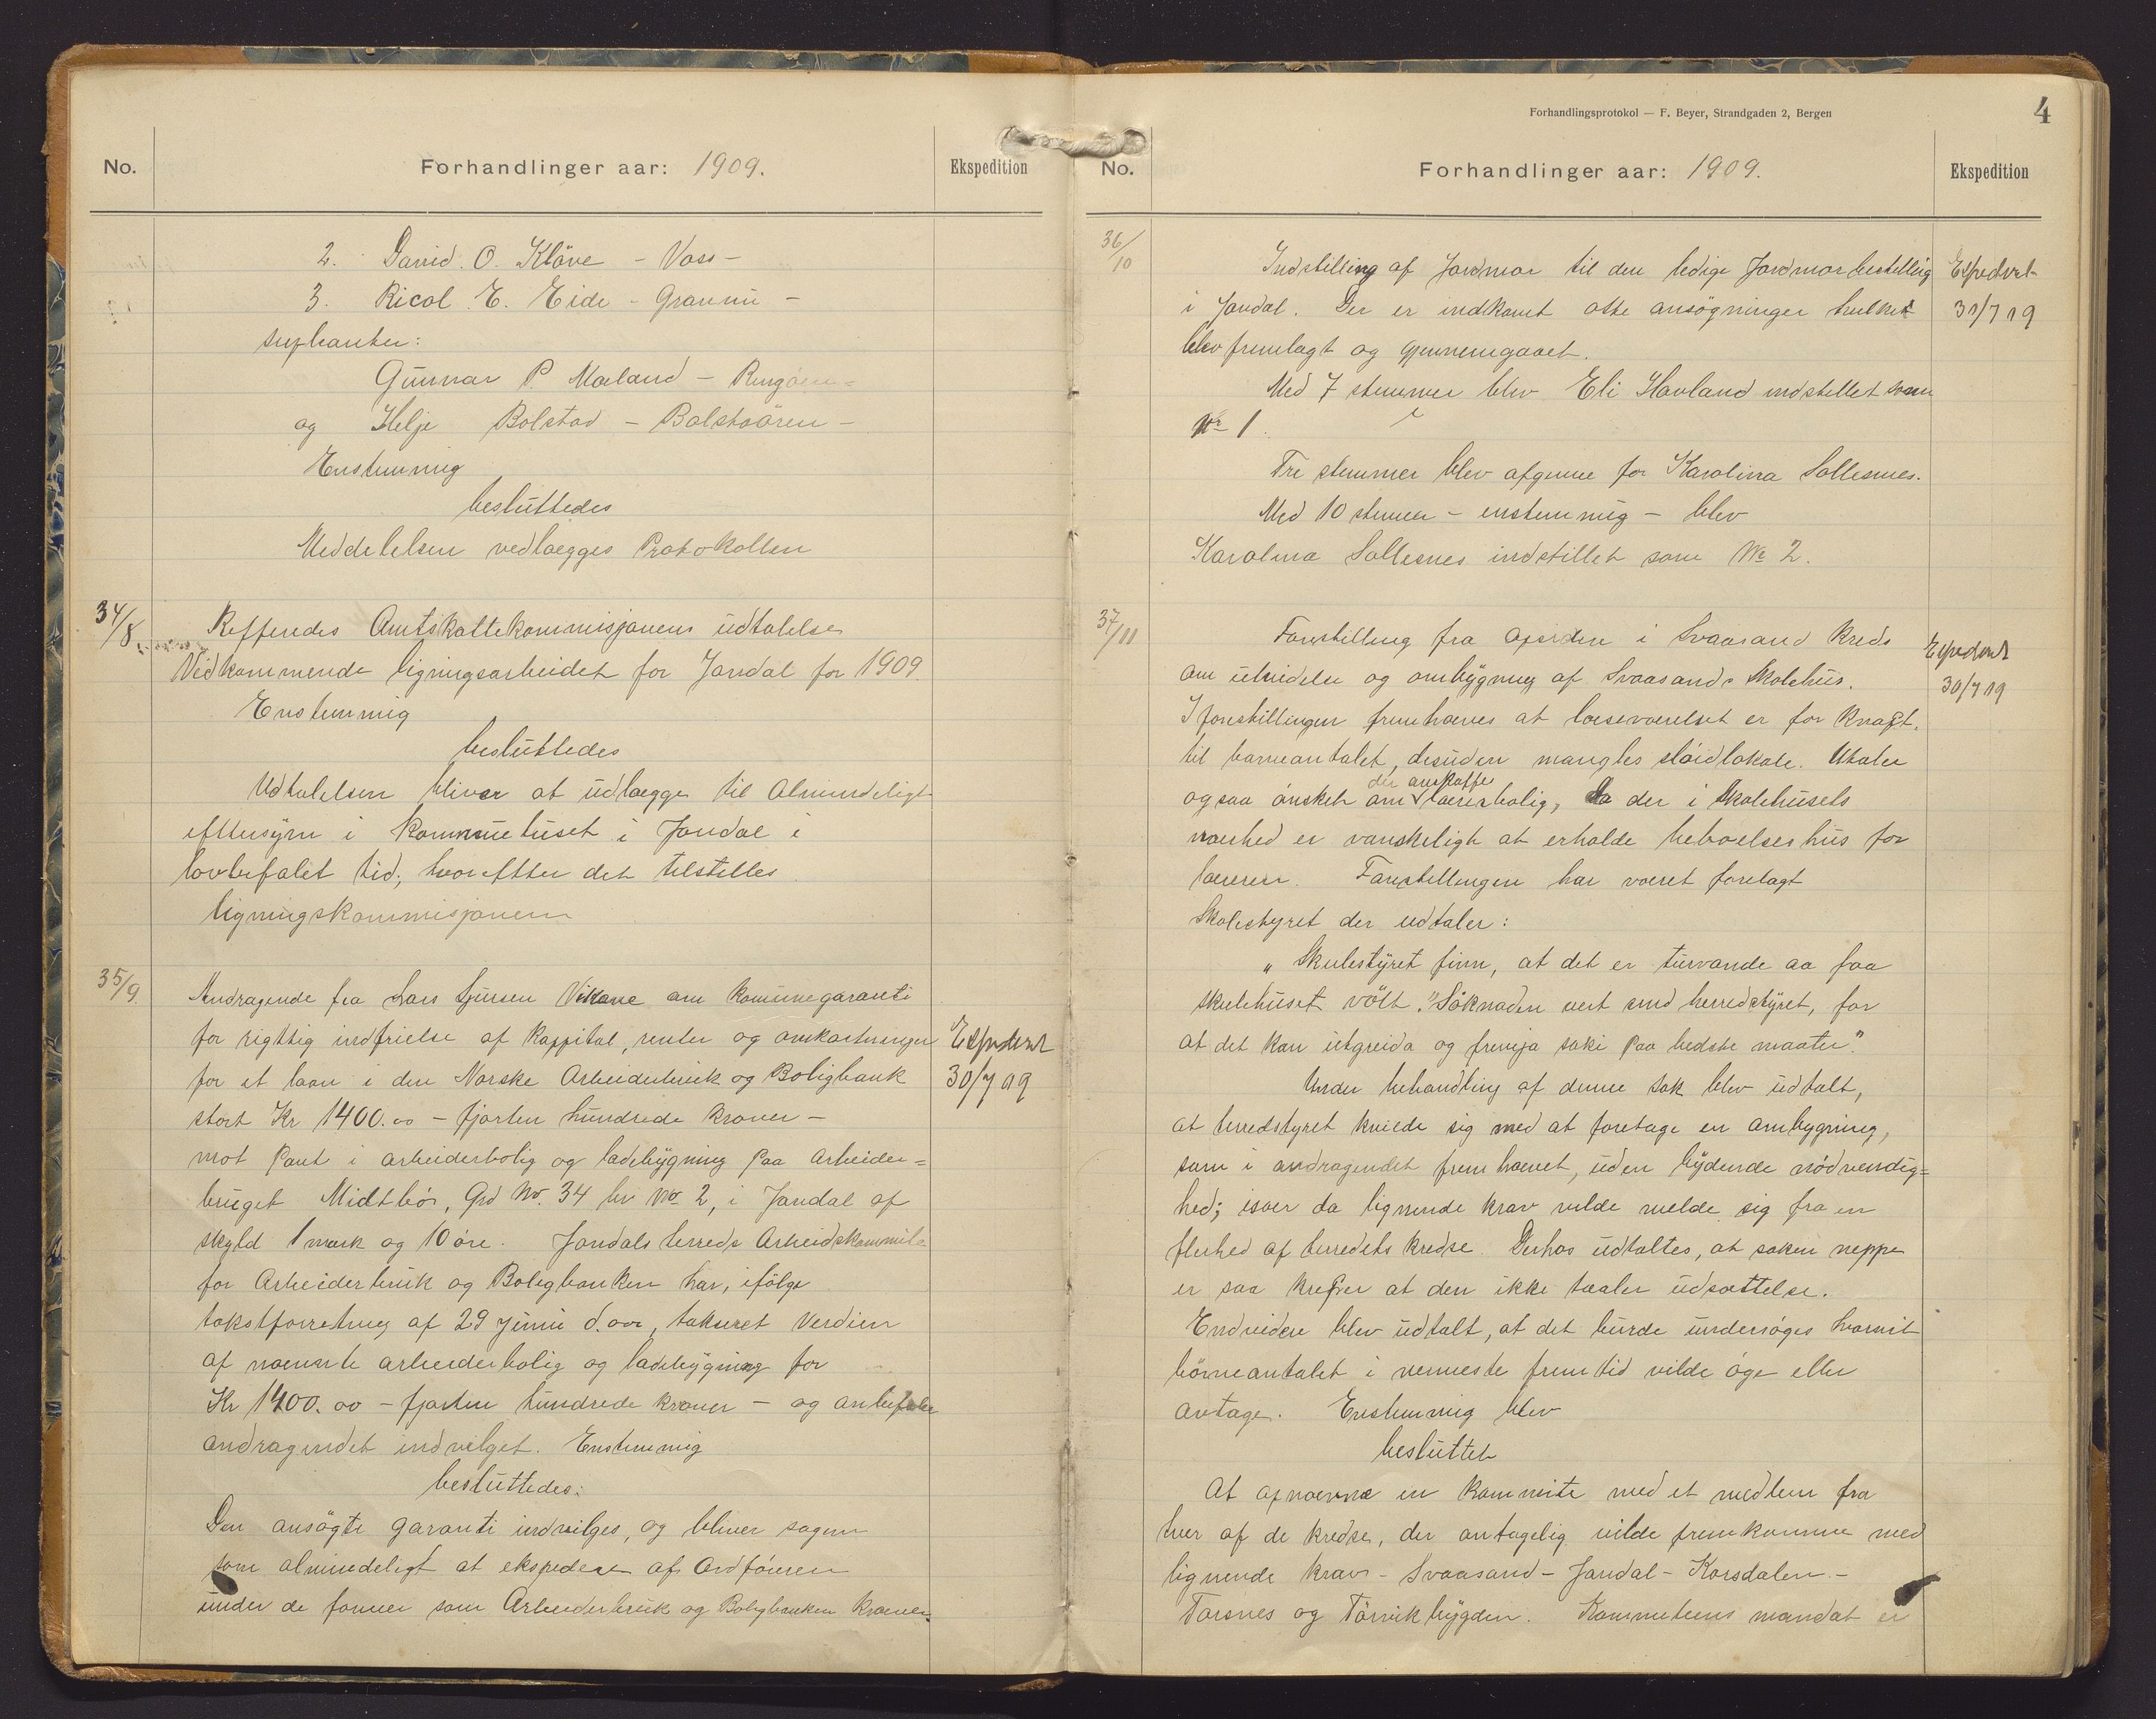 No.
Forhandlinger aar: 1909.
Ekspedition
2. David. O. Kløve - Voss -
3. Ricol E. Eide - Granvin -
suplianter:
Gunnar P. Mæland -
og Helje Bolstad - Bolstaören -
Enstemmig
besluttedes
Meddelelsen vedlægges Protokollen
34/8.
Refferedes Amtskattekommisjonens udtalelse
Vedkommende ligningsarbeidet for Jondal for 1909
Enstemmig
besluttedes
Udtalelsen bliver at udlægge til Almindeligt
eftersyn i Kommunehuset i Jondal i
lovbefalet tid; hvorefter det tilstilles
ligningskommisjonen
35/9.
Andragende fra Lars Sjursen Vikane om Kommunegaranti
for rigttig indfrielse af kappital, renter og omkostninger
for et laan i den Norske Arbeiderbruk og Boligbank
stort Kr 1400.00 - fjorten hundrede kroner -
mot Pant i arbeiderbolig og ladebygning paa Arbeider=
bruget Midtbö, Grd No. 34 br No 2, i Jondal af
skyld 1 mark og 10 öre. Jondals herreds Arbeidskommite
for Arbeiderbruk og Boligbanken har, ifölge
takstforretning af 29 juni d. aar, takseret Verdien
af nævnte arbeiderbolig og ladebygning for
Kr 1400.00 - fjorten hundrede kroner - og anbefaler
andragendet indvilget. Enstemmig
besluttedes:
Den ansögte garanti indvilges, og bliver sagen
som almindeligt at ekspedere af Ordföreren
under de former som Arbeiderbruk og Boligbanken kræver.
Expedert
30/7 09
Forhandlingsprotokol — F. Beyer, Strandgaden 2, Bergen
4
No.
Forhandlinger aar: 1909.
Ekspedition
36/10
Indstilling af Jordmor til den ledige Jordmorbestilling
i Jondal. Der er indkomt otte ansögninger hvilket
blev fremlagt og gjennemgaaet.
Med 7 stemmer blev Eli Havland indstillet som
No 1.
Tre stemmer blev afgivne for Karolina Sollesnes.
Med 10 stemmer - enstemmig - blev
Karolina Sollesnes indstillet som No 2.
Expedert
30/7 09
37/11
Forestilling fra opsidere i Svaasand Kreds
om utvidelse og ombygning af Svaasands Skolehus.
I forestillingen fremhæves at læseværelset er for knapt
til barneantalet, desuden mangles slöidlokale. Utaler
der anskaffes
ogsaa önsket om lærerbolig, da der i Skolehusets
nærhed er vanskeligt at erholde beboelseshus for
læreren. Forestillingen har været forelagt
Skolestyret der udtaler:
„Skulestyret finn, at det er turvande aa faa
skulehuset völt. Söknaden vert send herredstyret, for
at det kan utgreida og fremja saki paa bedste maate."
Under behandling af denne sak blev udtalt,
at herredstyret kviede sig med at foretage en ombygning,
som i andragendet fremhævet, uden bydende nödvendig=
hed; især da lignende krav vilde melde sig fra en
flerhed af herredets kredse. Derhos udtaltes, at saken neppe
er saa at den ikke taaler udsættelse.
Endvidere blev udtalt, at det burde undersöges hvorvit
börneantalet i nermeste fremtid vilde öge eller
avtage. Enstemmig blev
besluttet
At opnævne en kommite med et medlem fra
hver af de kredse, der antagelig vilde fremkomme med
lignende krav - Svaasand - Jondal - Korsdalen -
Torsnes og Törvikbygden. Kommiteens mandat er
Expedert
30/7 09